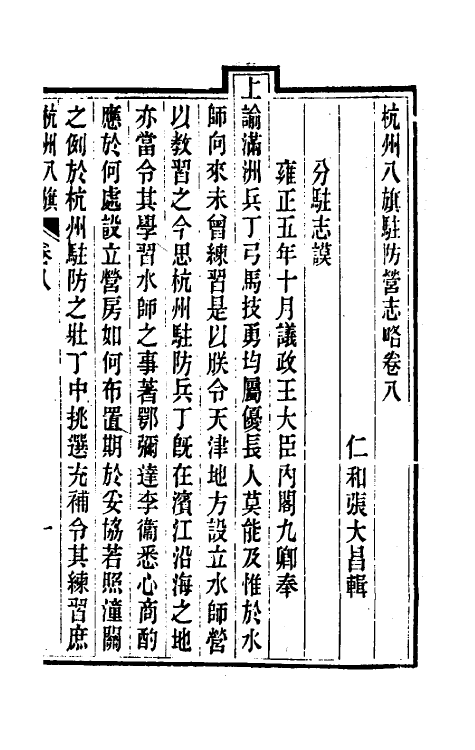 杭州八旗駐防營志略卷八
仁和張大昌輯
分駐志謨
雍正五年十月議政王大臣內閣九卿奉
上諭滿洲兵丁弓馬技勇均屬優長人莫能及惟於水
師向來未曾練習是以朕令天津地方設立水師營
以教習之今思杭州駐防兵丁旣在濱江沿海之地
亦當令其學習水師之事著鄂彌達李衞悉心商酌
應於何處設立營房如何布置期於妥協若照潼關
之例於杭州駐防之壯丁中挑選充補令其練習庶
杭州八旗 卷八 一